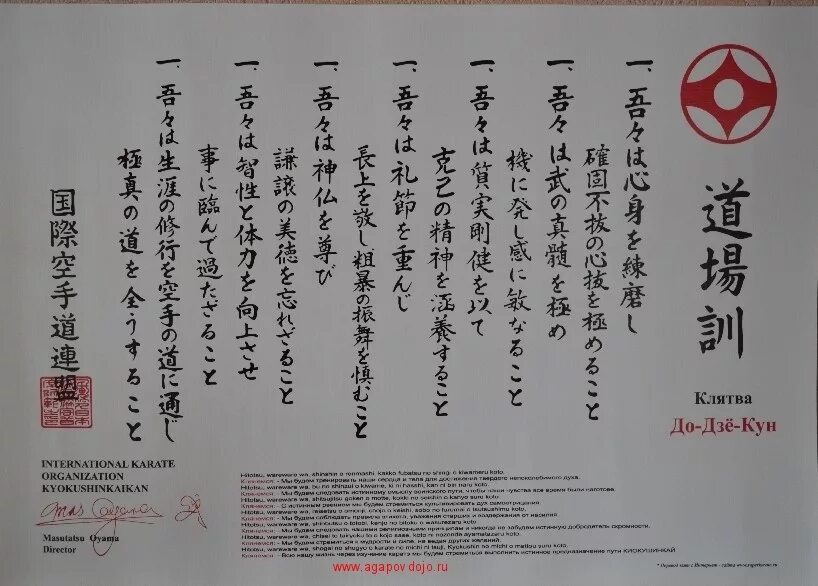 道場訓
Клятва
До-Дзё-Кун
一、吾々は心身を錬磨し
確固不抜の心技を極めること
一、吾々は武の真髄を極め
機に発し感に敏なること
一、吾々は質実剛健を以て
克己の精神を涵養すること
一、吾々は礼節を重んじ
長上を敬し粗暴の振舞を慎むこと
一、吾々は神仏を尊び
謙譲の美徳を忘れざること
一、吾々は智性と体力を向上させ
事に臨んで過たざること
一、吾々は生涯の修行を空手の道に通じ
極真の道を全うすること
国際空手道連盟
INTERNATIONAL KARATE
ORGANIZATION
KYOKUSHINKAIKAN
Mas Oyama
Masutatsu Oyama
Director
Hitotsu, wareware wa, shinshin o renmashi, kakko fubatsu no shingi o kiwameru koto.
Клянемся: - Мы будем тренировать наши сердца и тела для достижения твердого непоколебимого духа.
Hitotsu, wareware wa, bu no shinzui o kiwame, ki ni hasshi, kan ni bin naru koto.
Клянемся: - Мы будем следовать истинному смыслу воинского пути, чтобы наши чувства все время были наготове.
Hitotsu, wareware wa, shitsujitsu goken o motte, kokki no seishin o kanyo suru koto.
Клянемся: - С истинным рвением мы будем культивировать дух самоотрицания.
Hitotsu, wareware wa, reisetsu o omonji, chojo o keishi, sobo no furumai o tsutsushimu koto.
Клянемся: - Мы будем соблюдать правила этикета, уважения старших и воздержания от насилия.
Hitotsu, wareware wa, shinbutsu o totobi, kenjo no bitoku o wasurezaru koto.
Клянемся: - Мы будем следовать нашим религиозным принципам и никогда не забудем истинную добродетель скромности.
Hitotsu, wareware wa, chisei to tairyoku to o kojo sase, koto ni nozonde ayamatazaru koto.
Клянемся: - Мы будем стремиться к мудрости и силе, не ведая других желаний.
Hitotsu, wareware wa, shogai no shugyo o karate no michi ni tsuji, Kyokushin no michi o mattou suru koto.
Клянемся: - Всю нашу жизнь через изучение каратэ мы будем стремиться выполнить истинное предназначение пути КИОКУШИНКАЙ
www.agapovdojo.ru